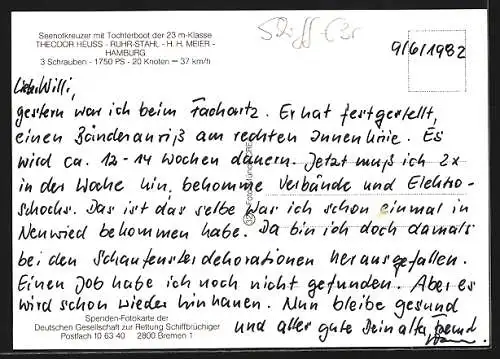 Seenotkreuzer mit Tochterboot der 23 m-Klasse
THEODOR HEUSS - RUHR-STAHL - H. H. MEIER -
HAMBURG
3 Schrauben - 1750 PS - 20 Knoten = 37 km/h
Schiff
9/6/1982
Lieber Willi,
gestern war ich beim Facharzt. Er hat festgestellt,
einen Bänderanriß am rechten Innenknie. Es
wird ca. 12-14 Wochen dauern. Jetzt muß ich 2x
in der Woche hin, bekomme Verbände und Elektro-
schocks. Das ist das selbe was ich schon einmal in
Neuwied bekommen habe. Da bin ich doch damals
bei den Schaufensterdekorationen herausgefallen.
Einen Job habe ich noch nicht gefunden. Aber es
wird schon wieder hinhauen. Nun bleibe gesund
und alles gute Dein alter Freund
Spenden-Fotokarte der
Deutschen Gesellschaft zur Rettung Schiffbrüchiger
Postfach 10 63 40 2800 Bremen 1